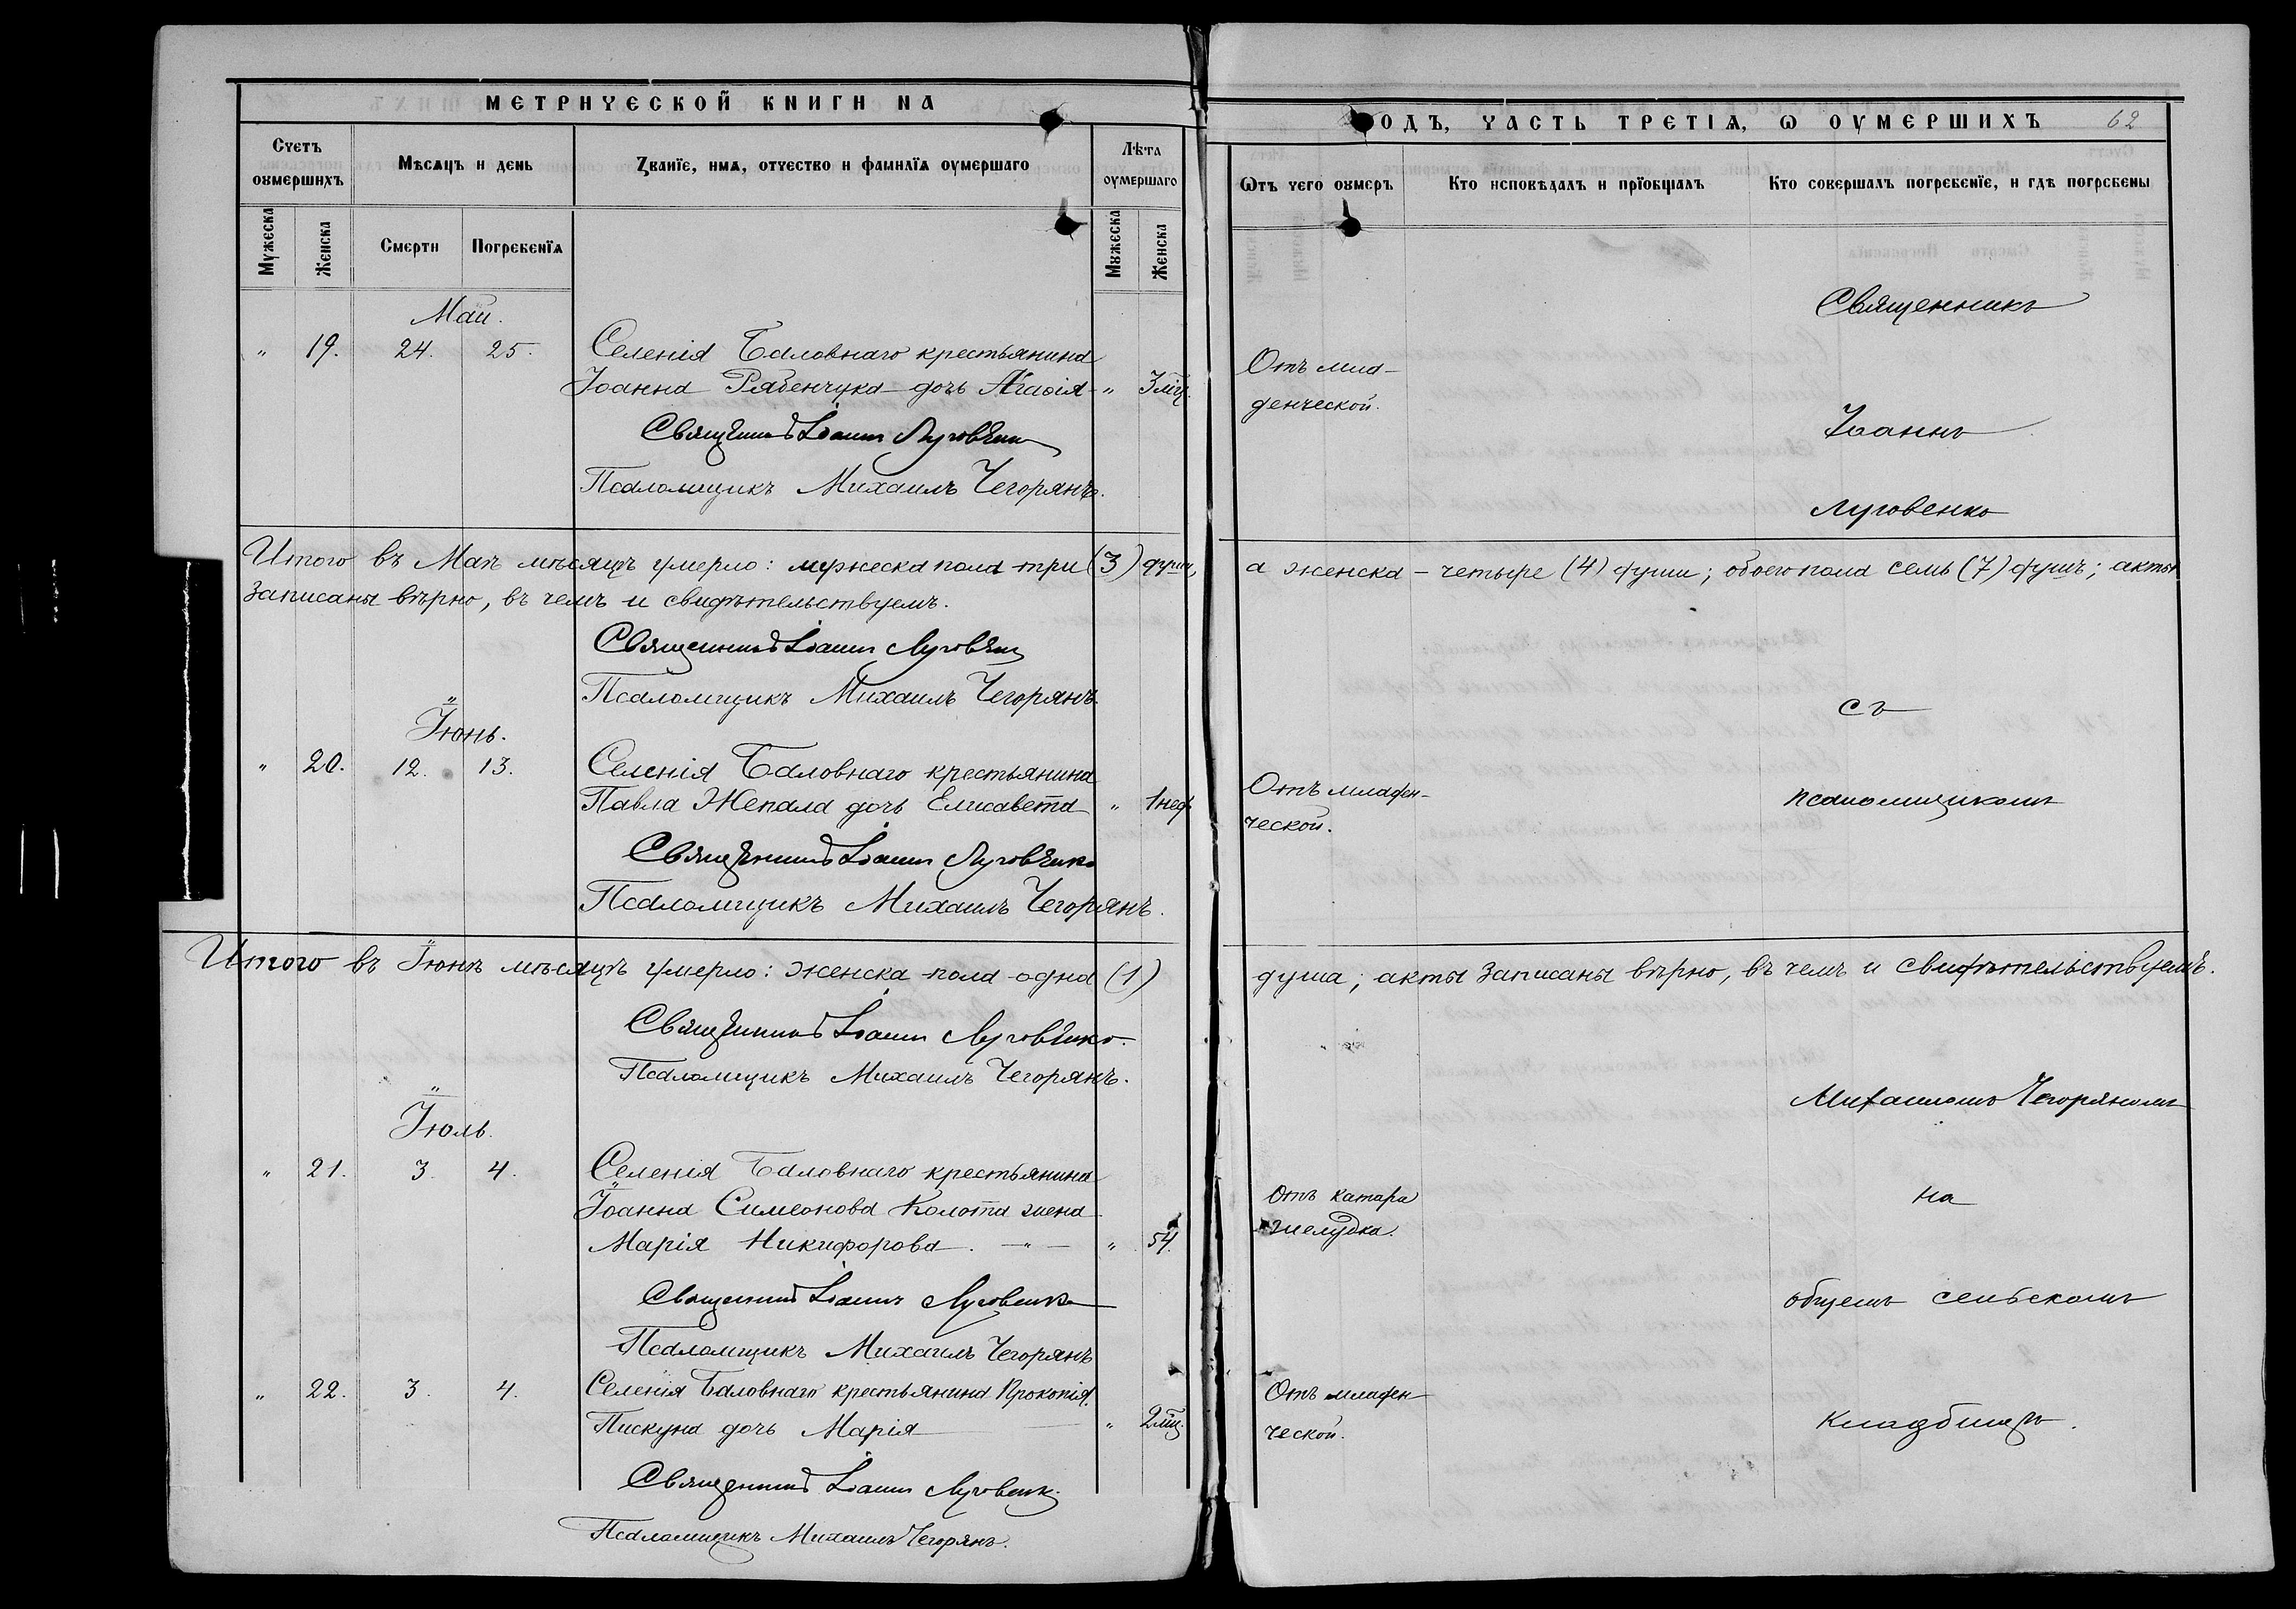 МЕТРИЧЕСКОЙ КНИГИ НА
Счетъ оумершихъ
Мѣсяцъ и день
Званїе, имѧ, отчество и фамилїѧ оумершаго
Лѣта оумершаго
Мужеска
Женска
Смерти
Погребенїѧ
Мужеска
Женска
Май.
" 19. 24. 25. Селенія Баловнаго крестьянина
Іоанна Рябенчука дочь Агаѳія " 3 мц.
Священникъ Іоаннъ Луговенко
Псаломщикъ Михаилъ Чегорянъ.
Итого въ Маѣ мѣсяцѣ умерло: мужеска пола три (3) души,
записаны вѣрно, въ чемъ и свидѣтельствуемъ.
Священникъ Іоаннъ Луговенко
Псаломщикъ Михаилъ Чегорянъ.
Іюнь.
" 20. 12. 13. Селенія Баловнаго крестьянина
Павла Жепала дочь Елисавета " 1 нед.
Священникъ Іоаннъ Луговенко
Псаломщикъ Михаилъ Чегорянъ.
Итого въ Іюнѣ мѣсяцѣ умерло: женска пола одна (1)
Священникъ Іоаннъ Луговенко.
Псаломщикъ Михаилъ Чегорянъ.
Іюль.
" 21. 3. 4. Селенія Баловнаго крестьянина
Іоанна Симеонова Колота жена
Марія Никифорова. — " — " 54.
Священникъ Іоаннъ Луговенко
Псаломщикъ Михаилъ Чегорянъ
" 22. 3. 4. Селенія Баловнаго крестьянина Прокопія
Пискуна дочь Марія " 2 мц.
Священникъ Іоаннъ Луговенко
Псаломщикъ Михаилъ Чегорянъ.
ОДЪ, ЧАСТЬ ТРЕТІѦ, Ѡ ОУМЕРШИХЪ 62
Ѿтъ чего оумеръ
Кто исповѣдалъ и прїобщалъ
Кто совершалъ погребенїе, и гдѣ погребены
Священникъ
Отъ мла-
денческой.
Іоаннъ
Луговенко
а женска - четыре (4) души; обоего пола семь (7) душъ; акты
съ
Отъ младен-
ческой.
псаломщикомъ
душа; акты записаны вѣрно, въ чемъ и свидѣтельствуемъ.
Михаиломъ Чегоряномъ
Отъ катара
желудка.
на
общемъ сельскомъ
Отъ младен-
ческой.
кладбищѣ.